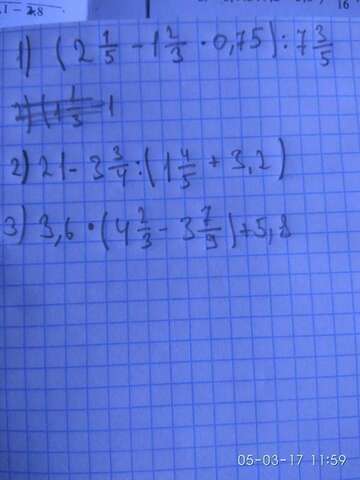 1 - 2,8
16
1) (2 1/5 - 1 2/3 · 0,75) : 7 3/5
2) (1 1/3 - 1
2) 21 - 3 3/4 : (1 4/5 + 3,2)
3) 3,6 · (4 2/3 - 3 7/9) + 5,8
05-03-17 11:59